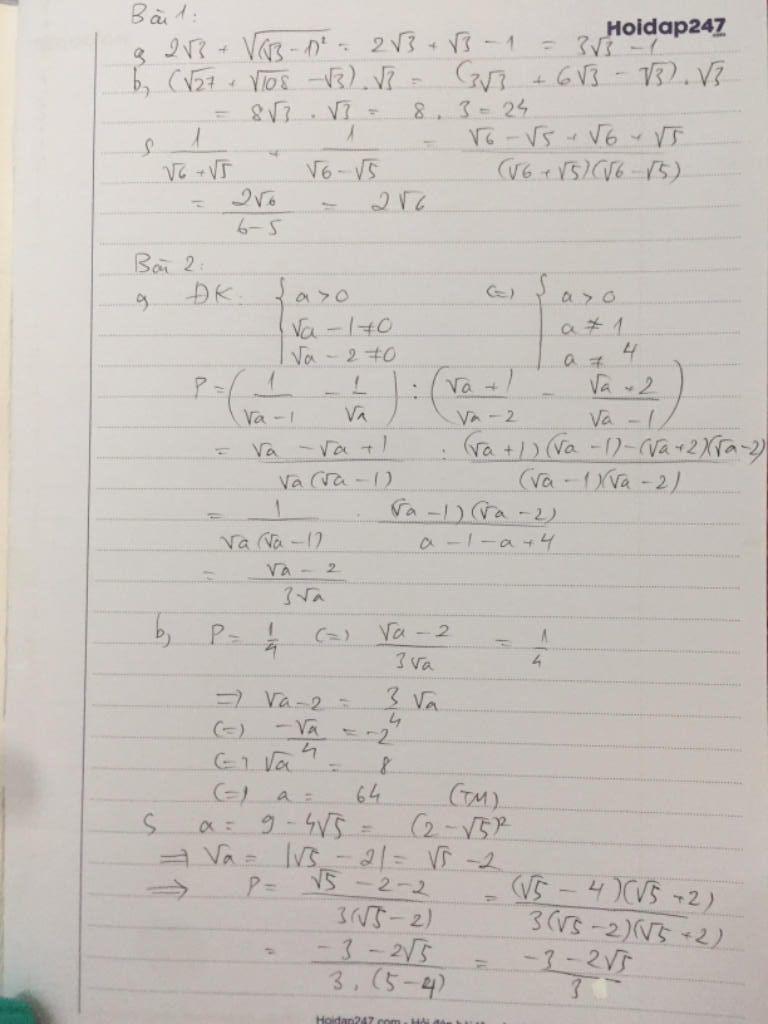 Bài 1:
Hoidap247
a, 2√3 + √(√3 - 1)² = 2√3 + √3 - 1 = 3√3 - 1
b, (√27 + √108 - √3) . √3 = (3√3 + 6√3 - √3) . √3
= 8√3 . √3 = 8 . 3 = 24
c, 1/(√6 + √5) + 1/(√6 - √5) = (√6 - √5 + √6 + √5)/((√6 + √5)(√6 - √5))
= 2√6/(6-5) = 2√6
Bài 2:
a, ĐK: { a > 0 (=) { a > 0
√a - 1 ≠ 0 a ≠ 1
√a - 2 ≠ 0 a ≠ 4
P = (1/(√a - 1) - 1/√a) : ((√a + 1)/(√a - 2) - (√a + 2)/(√a - 1))
= (√a - √a + 1)/(√a(√a - 1)) : ((√a + 1)(√a - 1) - (√a + 2)(√a - 2))/((√a - 1)(√a - 2))
= 1/(√a(√a - 1)) . (√a - 1)(√a - 2)/(a - 1 - a + 4)
= (√a - 2)/(3√a)
b, P = 1/4 (=) (√a - 2)/(3√a) = 1/4
=> √a - 2 = 3/4 √a
(=) -√a/4 = -2
(=) √a = 8
(=) a = 64 (TM)
c, a = 9 - 4√5 = (2 - √5)²
=> √a = |√5 - 2| = √5 - 2
=> P = (√5 - 2 - 2)/(3(√5 - 2)) = (√5 - 4)(√5 + 2)/(3(√5 - 2)(√5 + 2))
= (-3 - 2√5)/(3 . (5 - 4)) = (-3 - 2√5)/3